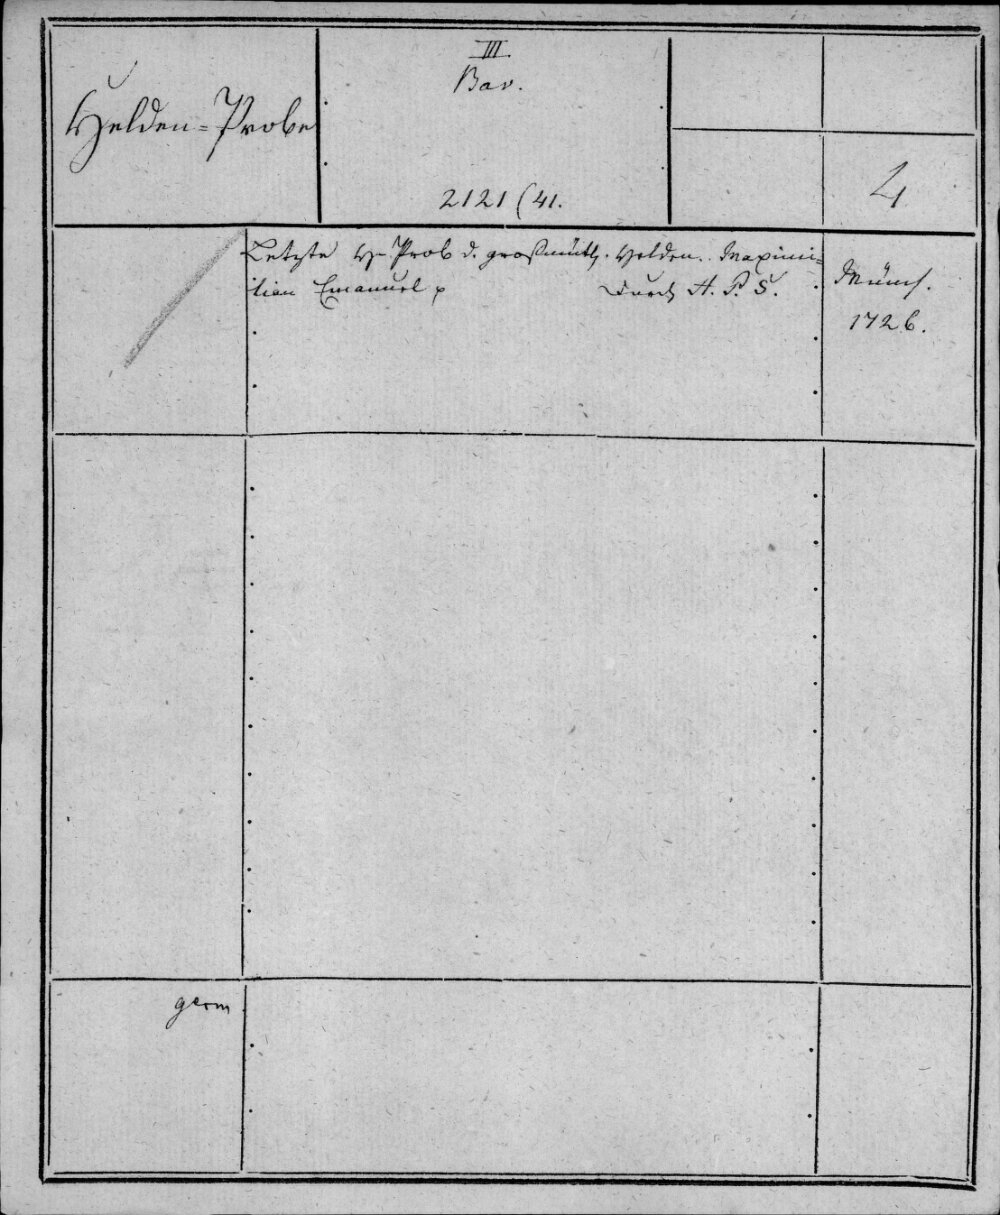 Helden=Probe
III.
Bav.
2121 (41.
4
Letzte H-Prob d. großmüth. Helden. Maximi=
lian Emanuel
Durch A. P. S.
Münch.
1726.
germ